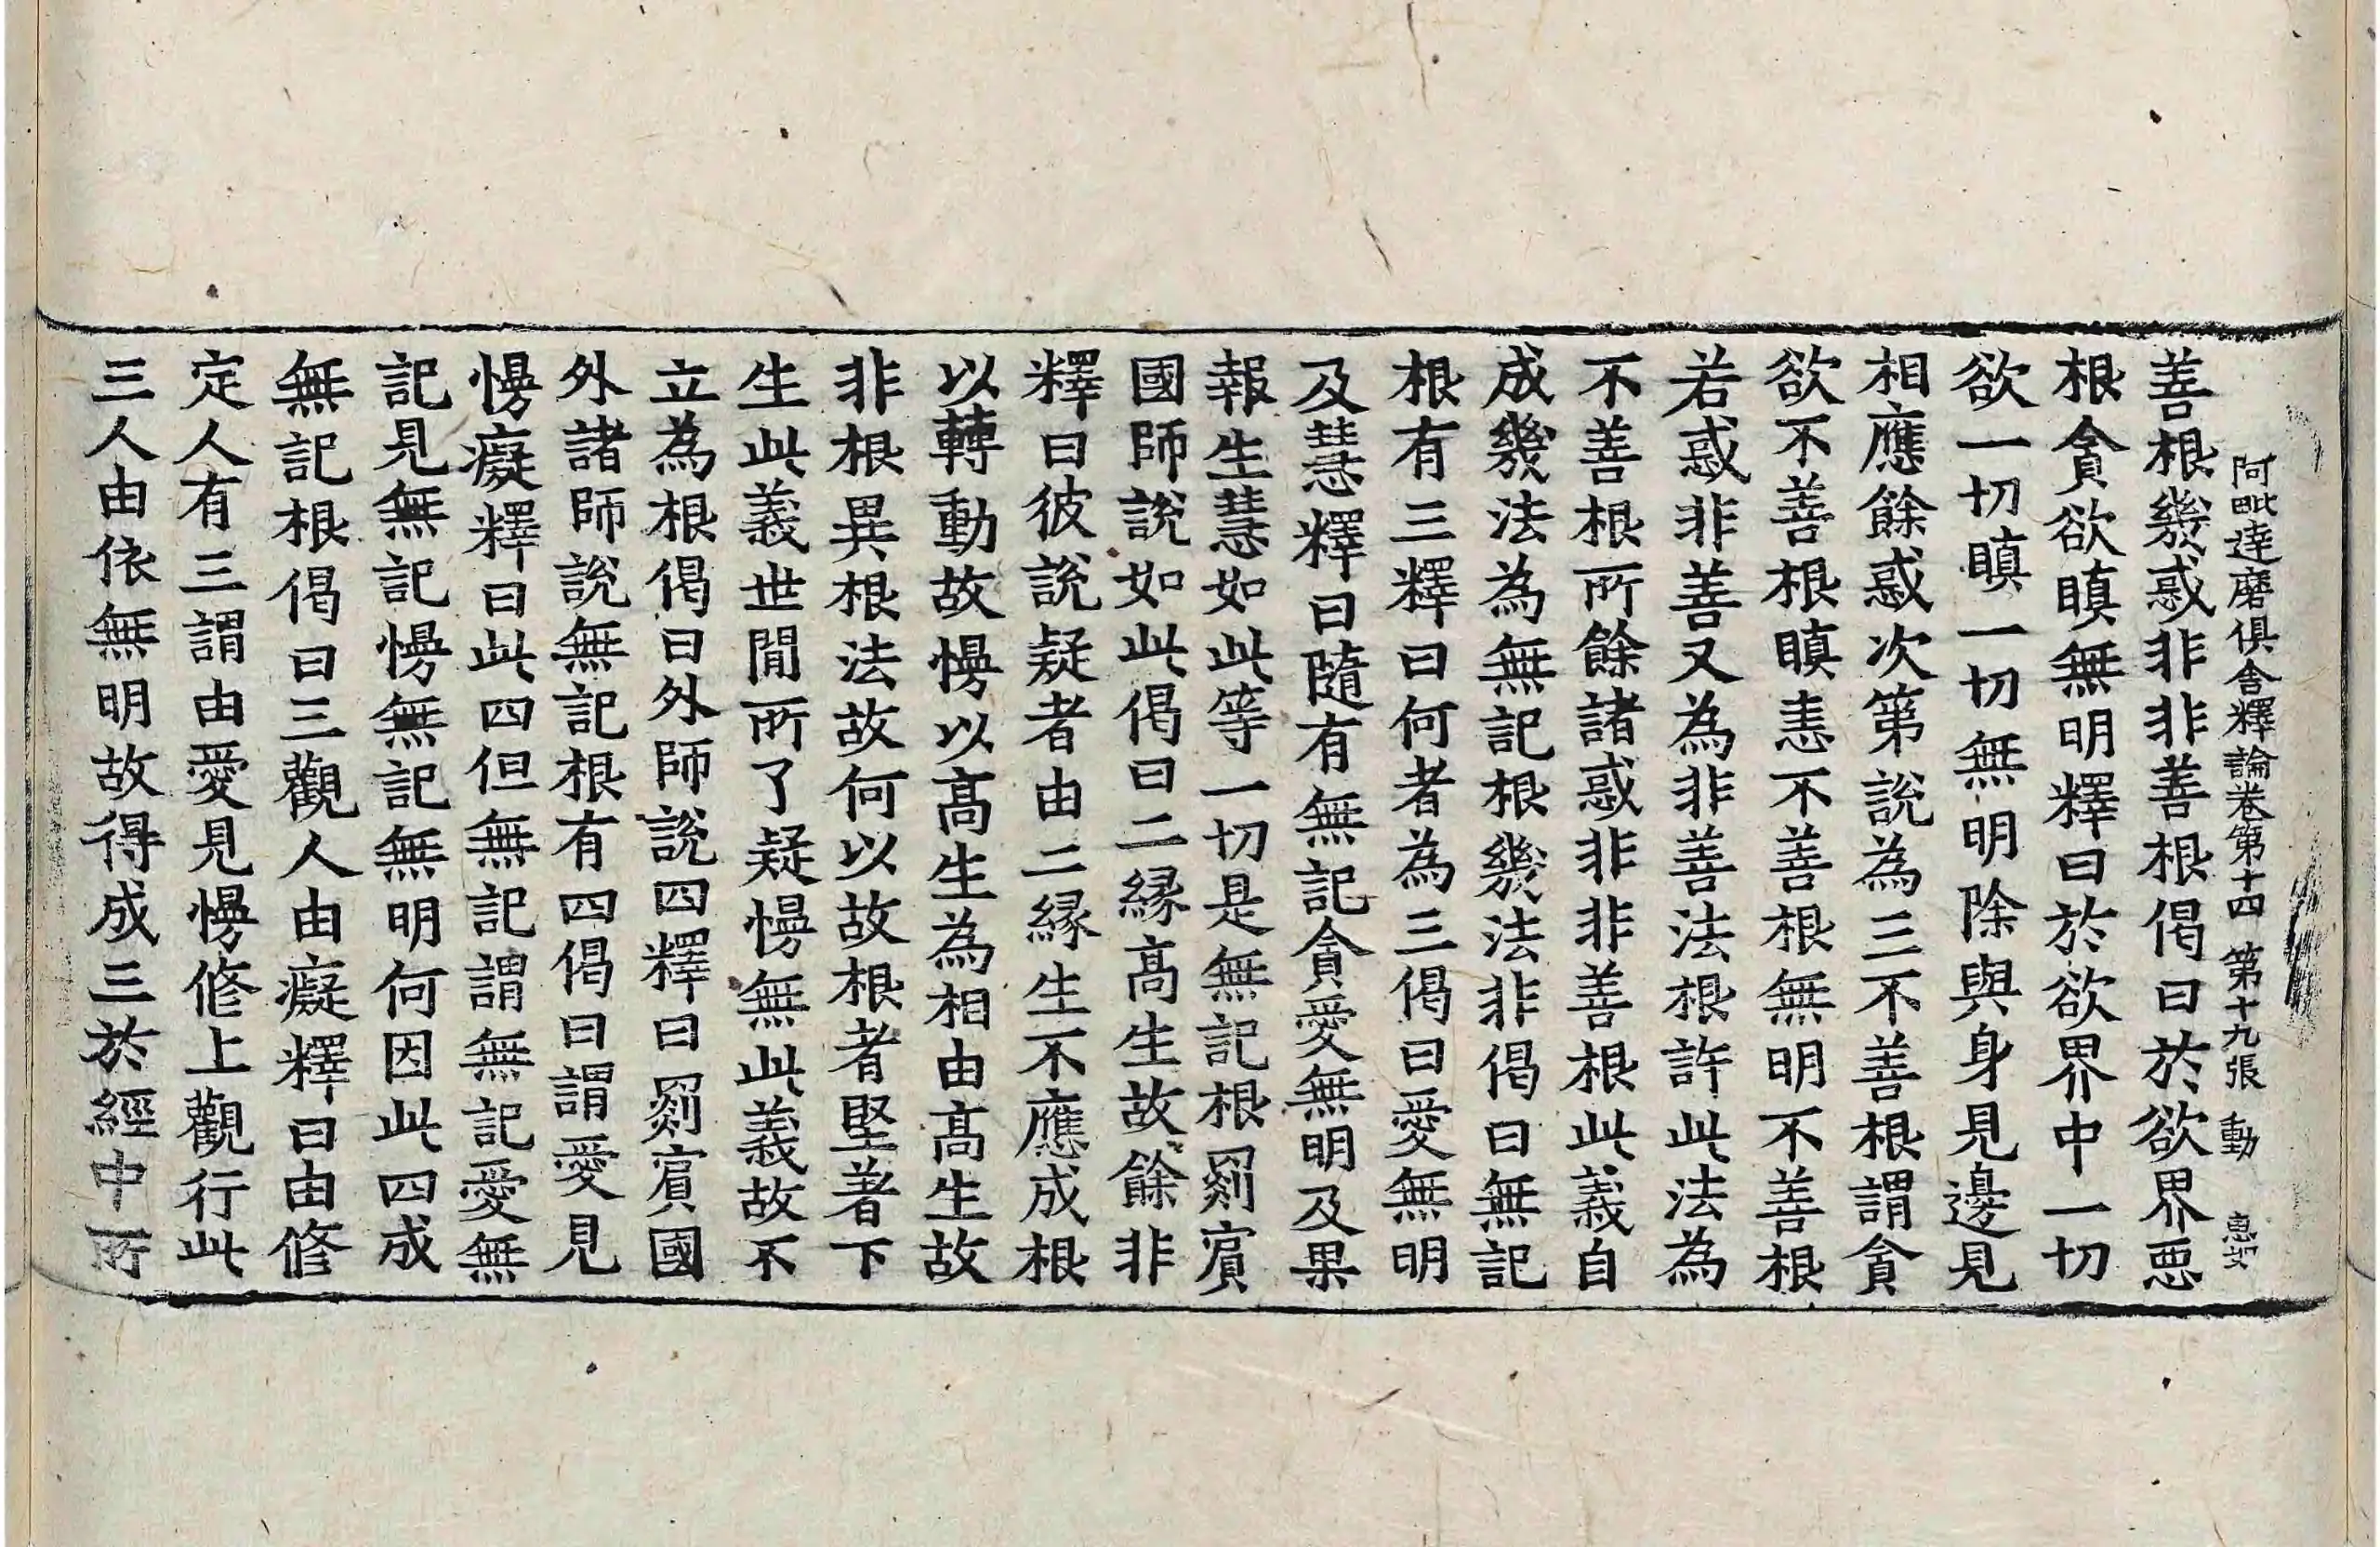 阿毗達磨俱舍釋論卷第十四 第十九張 動
善根幾惑非非善根偈曰於欲界惡
根貪欲瞋無明釋曰於欲界中一切
欲一切瞋一切無明除與身見邊見
相應餘惑次第說為三不善根謂貪
欲不善根瞋恚不善根無明不善根
若惑非善又為非善法根許此法為
不善根所餘諸惑非非善根此義自
成幾法為無記根幾法非偈曰無記
根有三釋曰何者為三偈曰愛無明
及慧釋曰隨有無記貪愛無明及果
報生慧如此等一切是無記根罽賔
國師說如此偈曰二緣高生故餘非
釋曰彼說疑者由二緣生不應成根
以轉動故慢以高生為相由高生故
非根異根法故何以故根者堅著下
生此義世間所了疑慢無此義故不
立為根偈曰外師說四釋曰罽賔國
外諸師說無記根有四偈曰謂愛見
慢癡釋曰此四但無記謂無記愛無
記見無記慢無記無明何因此四成
無記根偈曰三觀人由癡釋曰由修
定人有三謂由愛見慢修上觀行此
三人由依無明故得成三於經中所